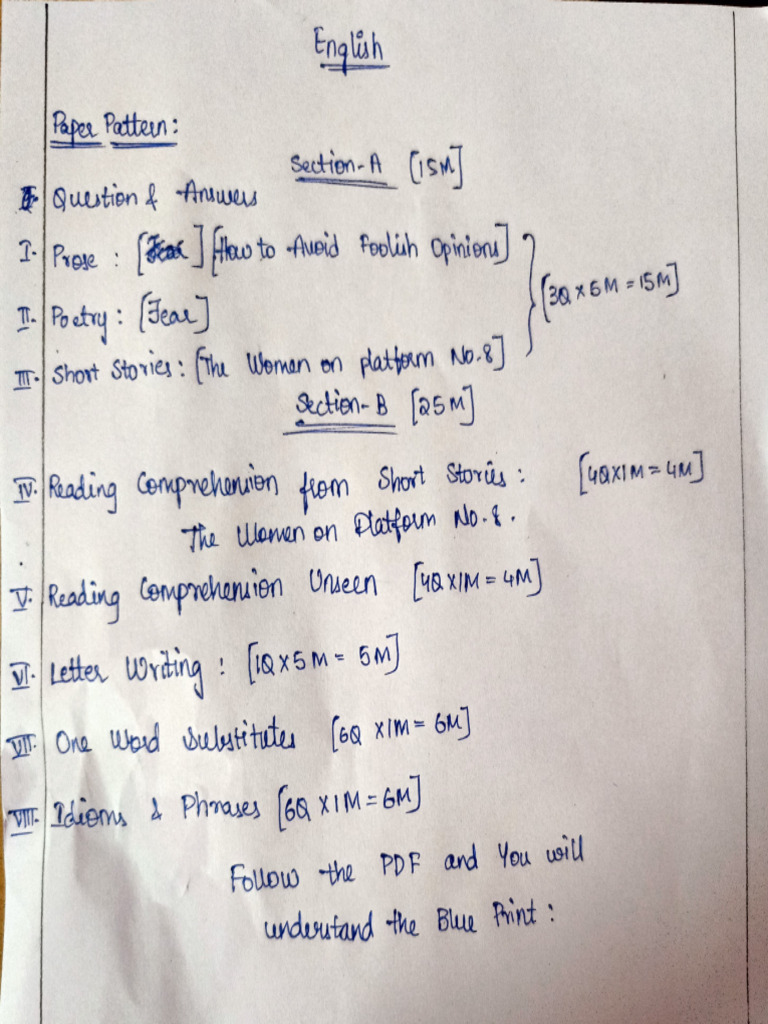 English
Paper Pattern:
Section-A [15M]
Question & Answers
I. Prose : [Fear] [How to Avoid Foolish Opinions]
[3Q x 5M = 15M]
II. Poetry : [Fear]
III. Short Stories : [The Women on platform No.8]
Section-B [25M]
IV. Reading Comprehension from Short Stories : [4Qx1M = 4M]
The Women on Platform No.8.
V. Reading Comprehension Unseen [4Qx1M = 4M]
VI. Letter Writing : [1Qx5M = 5M]
VII. One Word Substitutes [6Q x1M = 6M]
VIII. Idioms & Phrases [6Q x1M = 6M]
Follow the PDF and You will
understand the Blue Print :